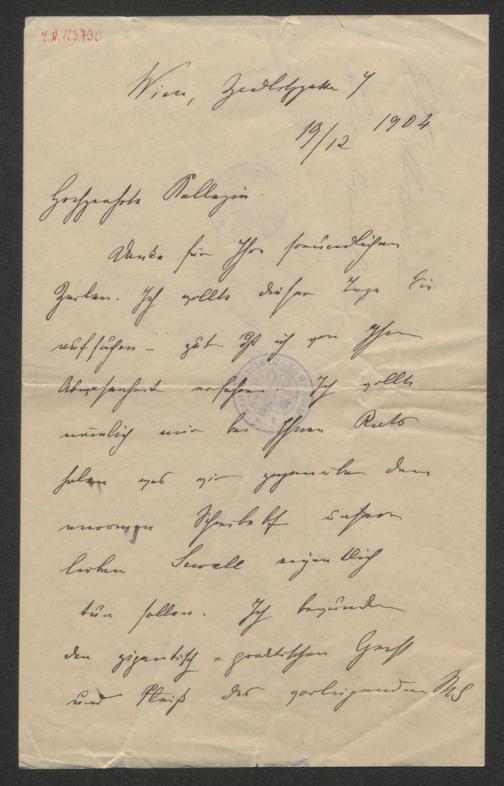 J.N. 123.730
Wien, Zedlitzgasse 7
19/12 1904
Hochgeehrte Kollegin.
Danke für Ihre freundlichen
Zeilen. Ich wollte dieser Tage Sie
aufsuchen – gut daß ich von Ihrer
Abwesenheit erfahren. Ich wollte
nämlich mir bei Ihnen Rats
holen was wir gegenüber dem
enormen unserer
lieben Sewall eigentlich
tun sollen. Ich bewundere
den gigantisch = praktischen Geist
und Fleiß der vorliegenden